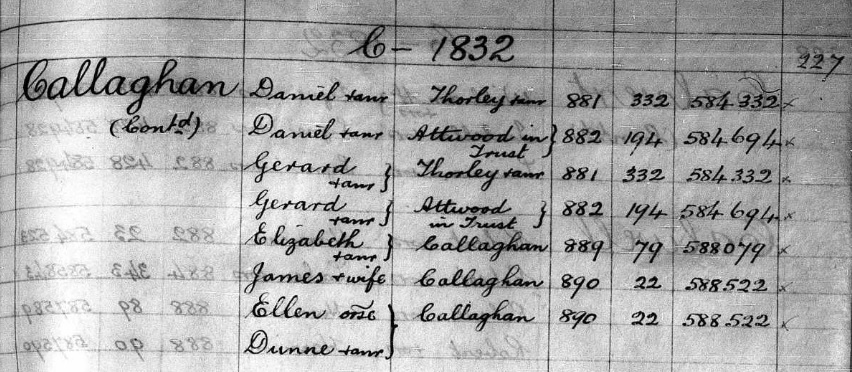 C - 1832
227
Callaghan Daniel + anr Thorley + anr 881 332 584332 x
(Contd) Daniel + anr Attwood in Trust } 882 194 584694 x
Gerard + anr } Thorley + anr 881 332 584332 x
Gerard + anr } Attwood in Trust } 882 194 584694 x
Elizabeth + anr } Callaghan 889 79 588079 x
James + wife Callaghan 890 22 588522 x
Ellen orse } Callaghan 890 22 588522 x
Dunne + anr }